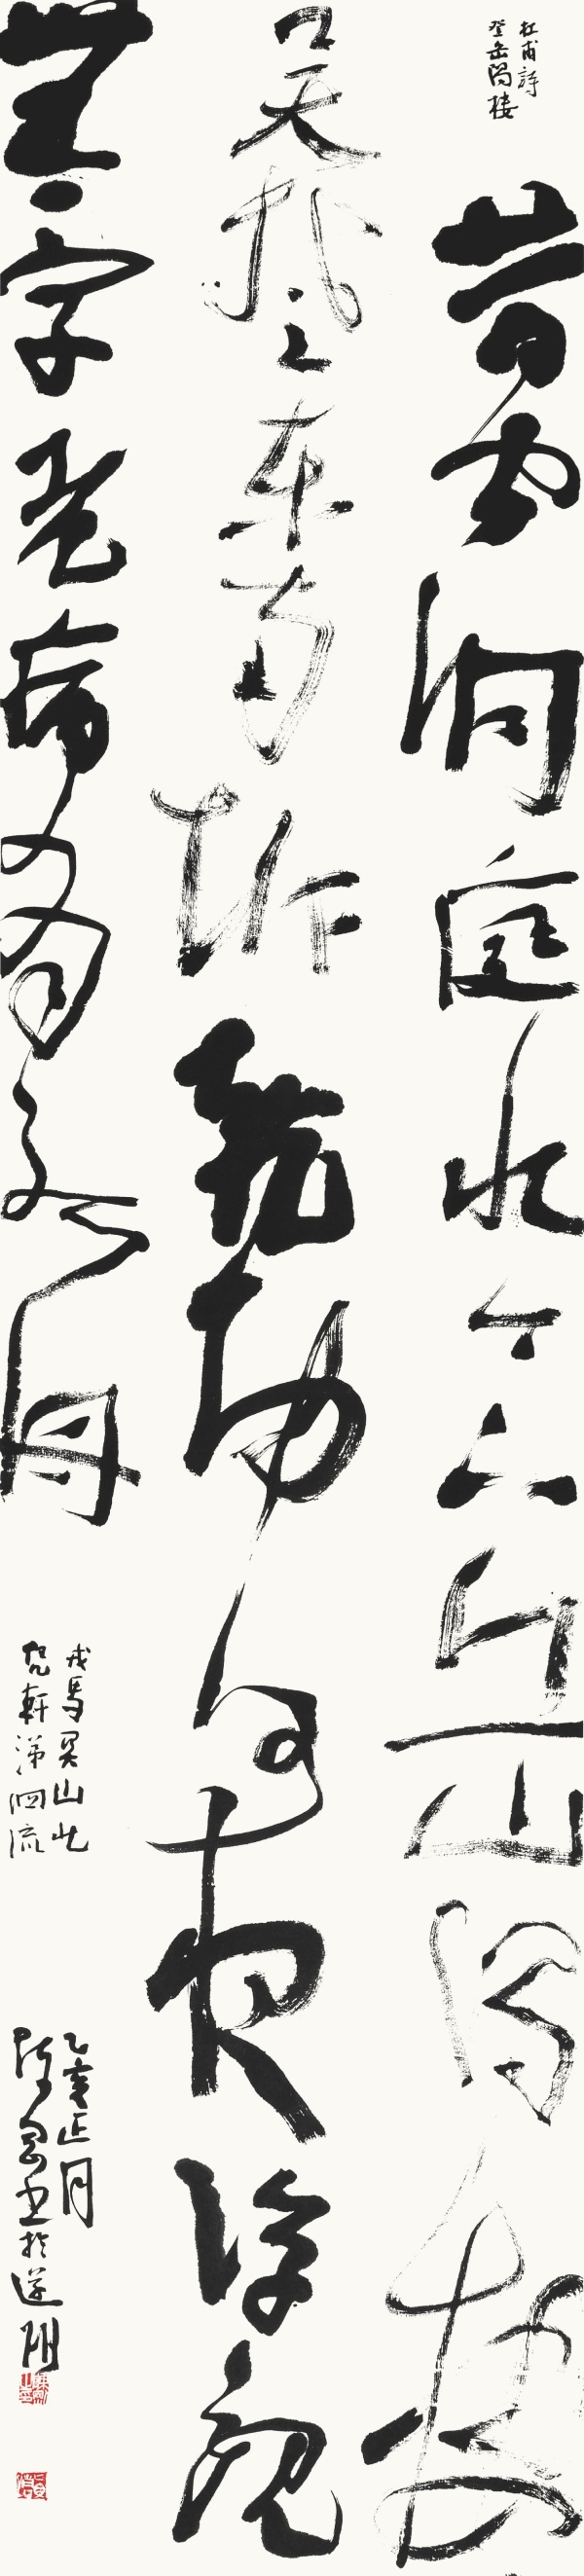 杜甫詩
登岳陽樓
昔聞洞庭水今上岳陽樓
吳楚東南坼乾坤日夜浮親
無一字老病有孤舟
戎馬関山北
凭軒涕泗流
乙亥正月